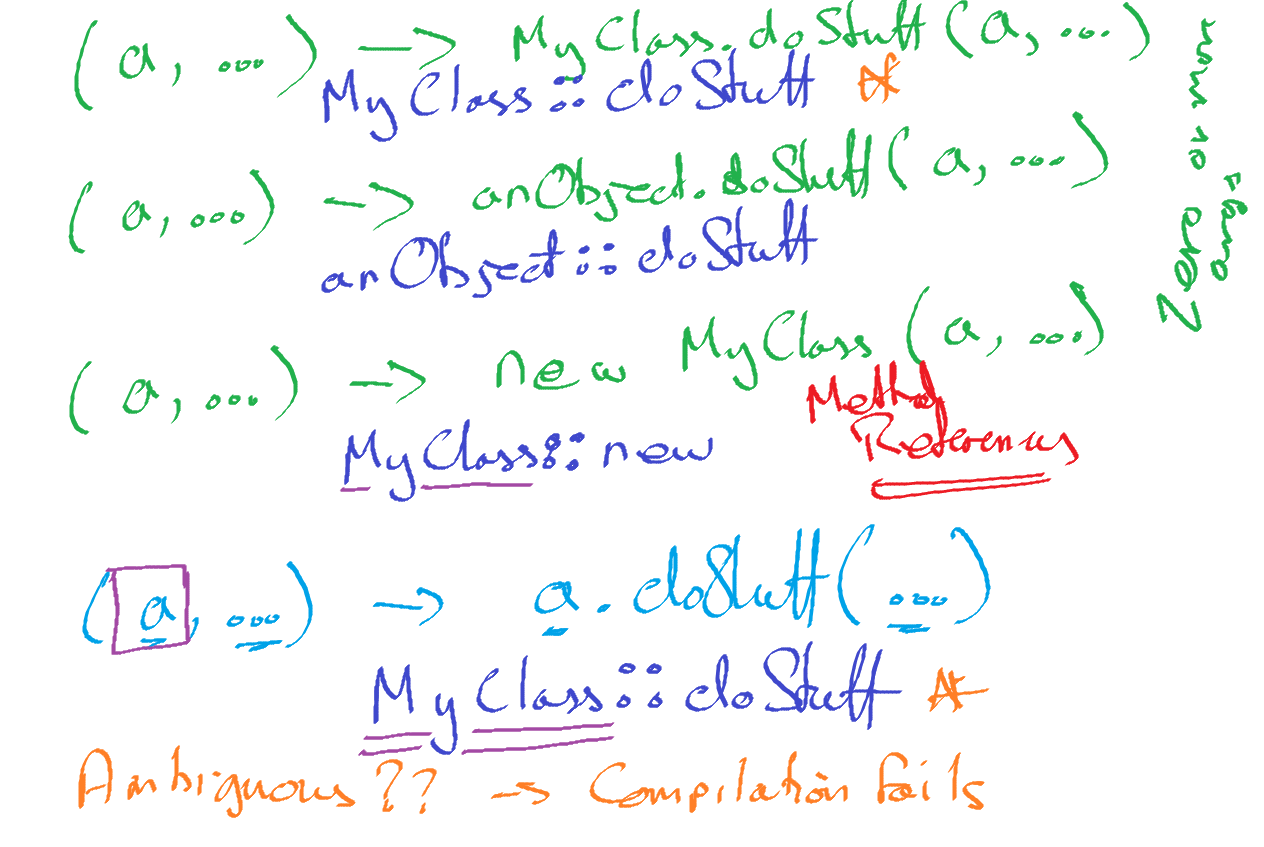 (a, ...) -> MyClass.doStuff(a, ...)
MyClass::doStuff *
(a, ...) -> anObject.doStuff(a, ...)
anObject::doStuff
(a, ...) -> new MyClass(a, ...)
MyClass::new
Zero or more
args
Method
References
(a, ...) -> a.doStuff(...)
MyClass::doStuff *
Ambiguous ?? -> Compilation fails